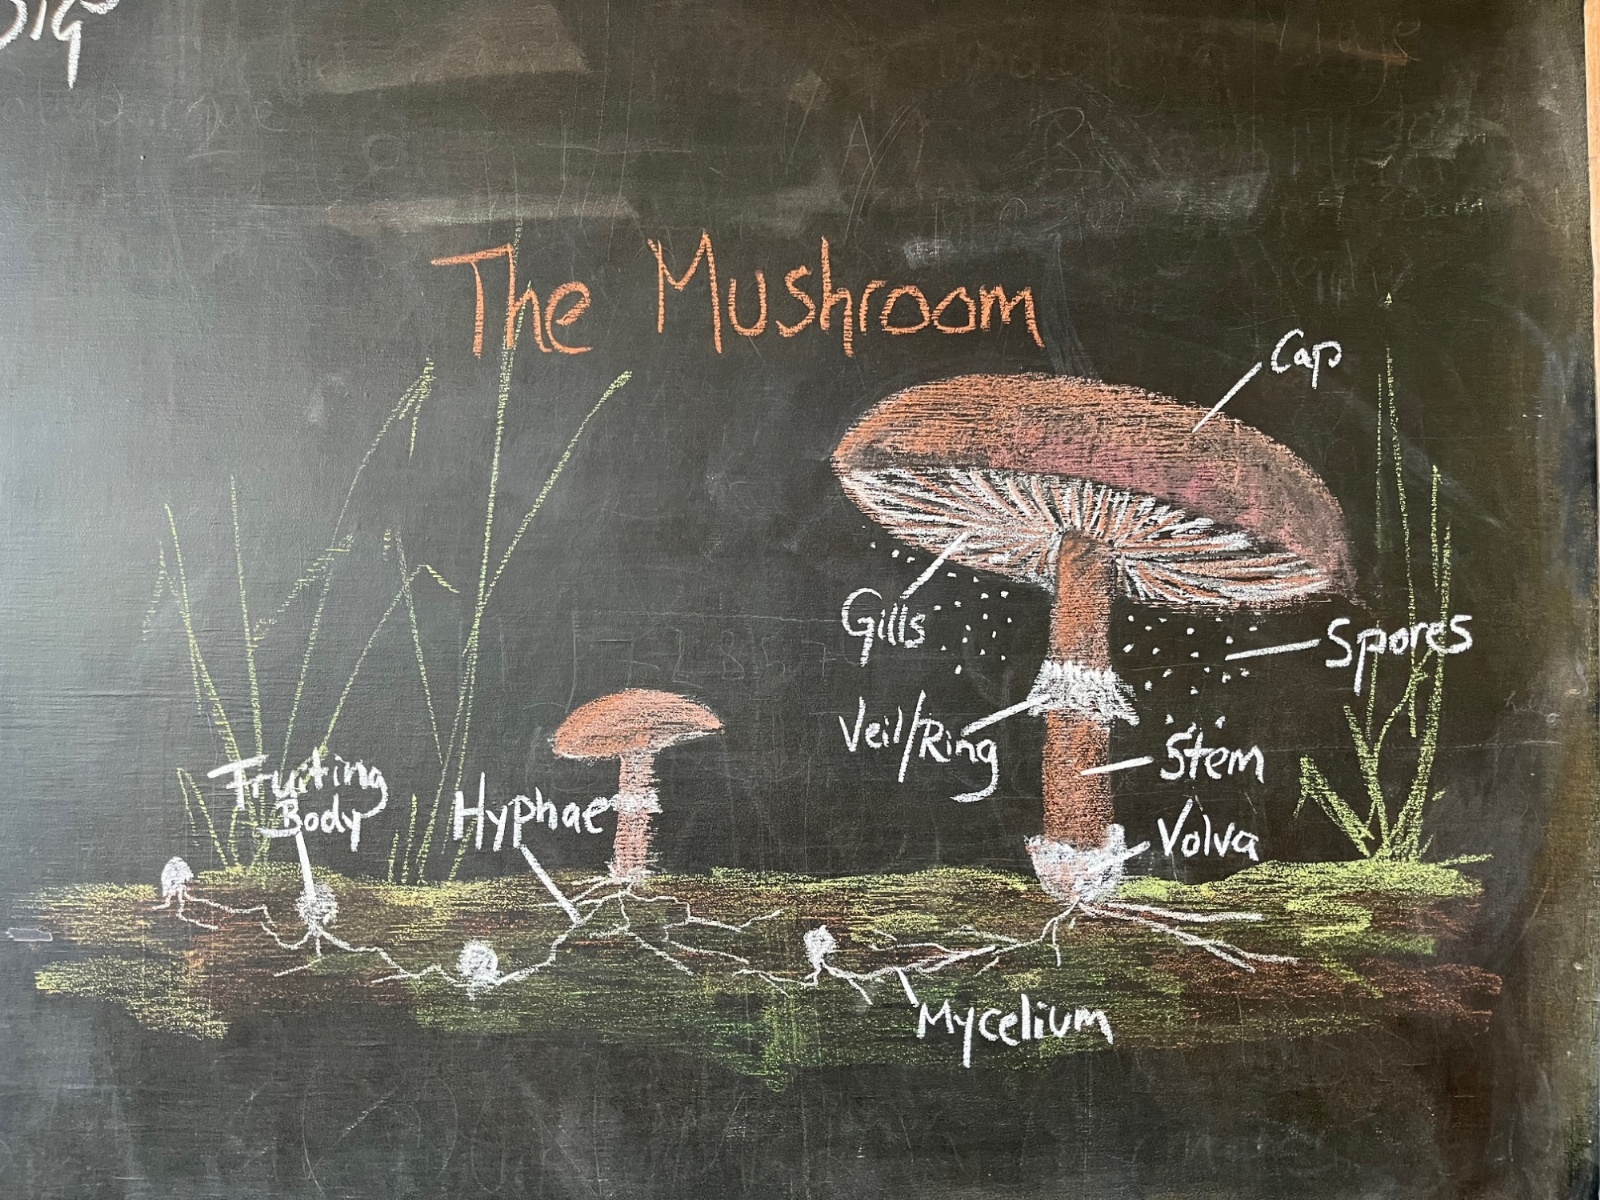 The Mushroom
Cap
Gills
Spores
Veil/Ring
Stem
Fruiting
Body
Hyphae
Volva
Mycelium